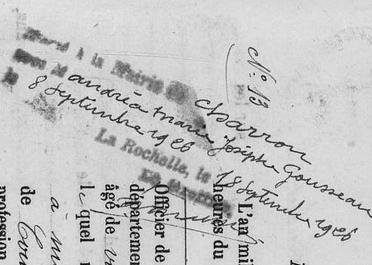 N° 13
Marié à la Mairie de Charron
avec Mle andréa marie Josèphe Gousseau
le 8 Septembre 1926
La Rochelle, le 18 Septembre 1926
Le Greffier,
L'an mi
heures du
Officier de
départemen
âgé de
lequel
à
de
profession